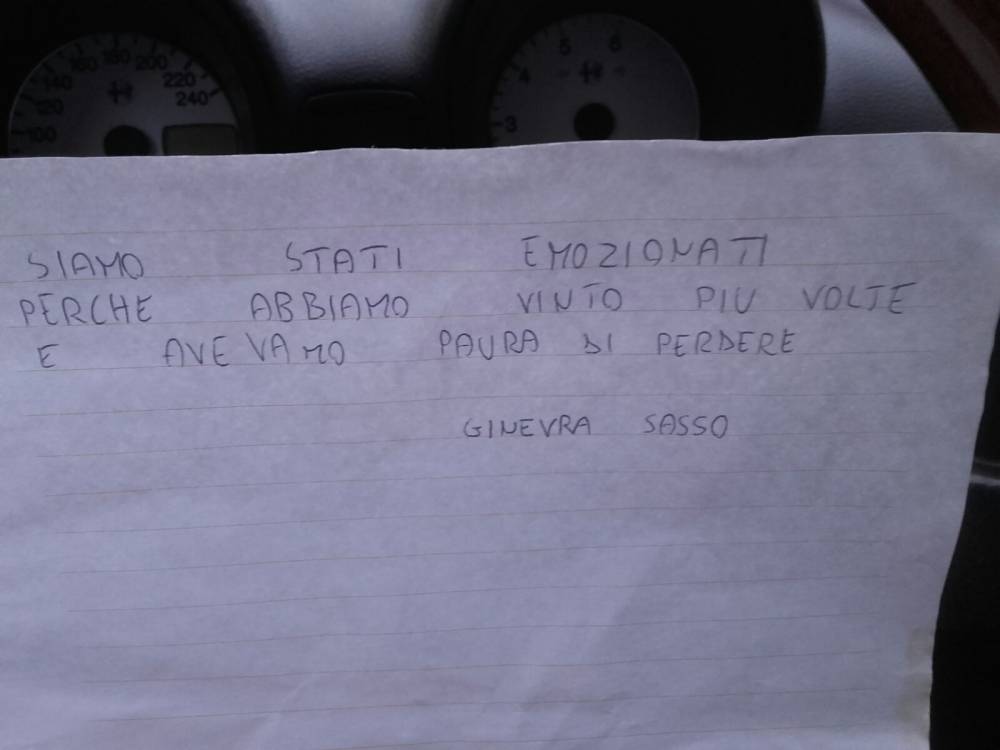 100 120 140 160 180 200 220 240
3 4 5 6
SIAMO STATI EMOZIONATI
PERCHE ABBIAMO VINTO PIU VOLTE
E AVEVAMO PAURA DI PERDERE
GINEVRA SASSO